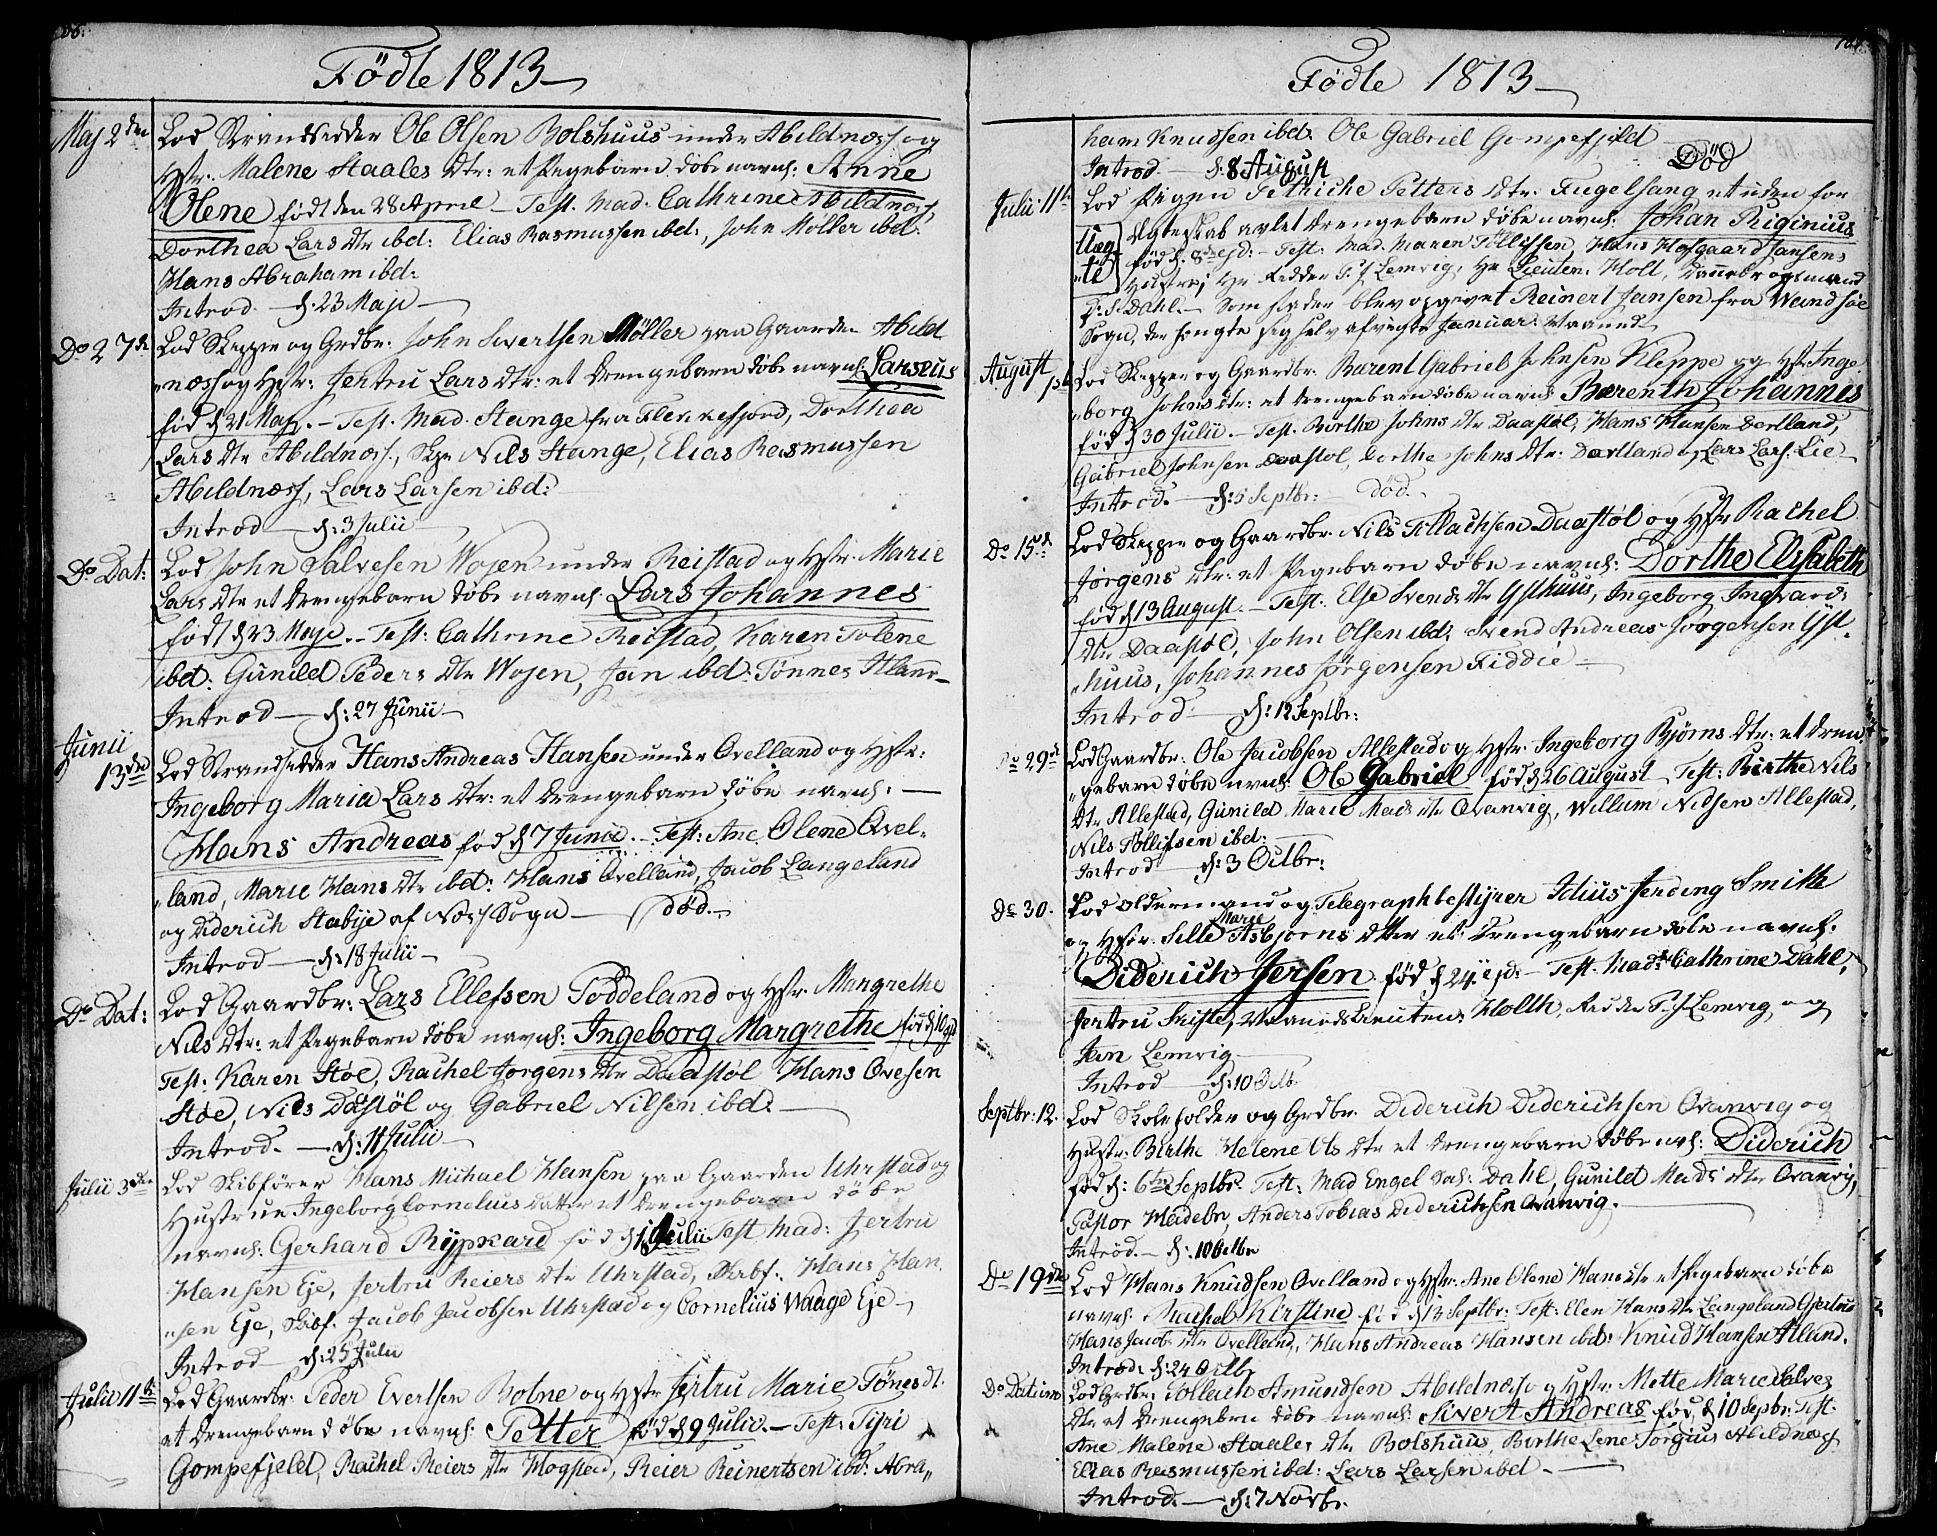 Födte 1813
Maj 2den Lod Strandsidder Ole Olsen Bolshuus under Abildnæss og
Hstr. Malene Staales Dtr: et Pigebarn døbe navnl: Anne
Olene født den 28 April – Test. Mad. Cathrine Abildnæss,
Dorthea Lars Dtr ibd: Elias Rasmussen ibd:, John Møller ibd:
Hans Abraham ibd:
Introd – d. 23 Maji –
Do 27de Lod Skipper og Grdbr. John Sivertsen Møller paa Gaarden Abild
næss og Hstr: Jertru Lars Dtr: et Drengebarn døbe navnl: Larseus
fød d 21 Maj. – Test. Mad. Stange fra Flekkefjord, Dorthea
Lars Dtr Abildnæss., Skpr Nils Stange, Elias Rasmussen
Abildnæss, Lars Larsen ibd:
Introd – d: 3 Julii –
Do Dat: Lod John Salvesen Wosen under Reistad og Hstr: Marie
Lars Dtr et Drengebarn døbe navnl. Lars Johannes
født d 23 Maje. – Test: Cathrine Reistad, Karen Tolene
ibd: Gunild Peders Dtr Wosen, Jan ibd: Tønnes
Introd – d: 27 Junii –
Junii 13de Lod Strandsidder Hans Andreas Hansen under Ovelland og Hstr:
Ingeborg Maria Lars Dtr: et Drengebarn døbe navnl: –
Hans Andreas fød d 7 Junie. – Test: Ane Olene Ovel-
land, Marie Hans Dtr ibd: Hans Ovelland, Jacob Langeland
og Diderich Stabye af Næss Sogn – død. –
Introd – d: 18 Julii –
Do Dat: Lod Gaardbr: Lars Ellefsen Töddeland og Hstr. Margrethe
Nils Dtr: et Pigebarn døbe navnl: Ingeborg Margrethe fød d 10
Test. Karen Støe, Rachel Jørgens Dtr Daastøl Hans Ovesen
Støe, Nils Daastøl og Gabriel Nilsen ibd: –
Introd. – d: 11 Julii –
Julii 3die Lod Skibfører Hans Michael Hansen paa Gaarden Uhrstad og
Hustrue Ingeborg Cornelius Datter et Drengebarn döbe
navnl: Gerhard Rijpkard fød d 1 Julii Test Mad: Jertru
Hansen Eje, Jertru Reiers Dtr Uhrstad, Skbf. Hans Han
sen Eje, Skbf. Jacob Jacobsen Uhrstad og Cornelius Waage Eje –
Introd – d: 25 Julii
Julii 11te Lod Gaardbr: Peder Evertsen Botne og Hstr Jertru Marie Tønes dt.
et Drengebarn døbe navnl: Petter fød d 9 Julii. – Test: Siri
Gompefjeld, Rachel Reiers Dtr Mogstad, Reier Reinertsen ibd: Abra
Födte 1813
ham Knudsen ibd. Ole Gabriel Gompefjeld
Introd – d. 8 August Död
Julii 11te Lod Pigen Petriche Petters Dtr: Fugelsang et uden for
Uægte Ægteskab avlet Drengebarn døbe navnl. Johan Riginius
fød d. 8de ejd: – Test: Mad. Maren Tollissen, Hans Hofgaard Jansens
Hustrue, Hr Ridder P. J. Lemvig, Hr Lieuten: Holt, Dannebrogsmand
P. S. Dahl. – Som Fader blev opgivet Reinert Jansen fra Wandsøe
Sogn, der hengte sig selv afvigte Januar: Maaned.
August 1ste Lod Skipper og Gaardbr. Barent Gabriel Johnsen Kleppe og Hstr Inge
borg Johns Dtr: et Drengebarn døbe navnl Berenth Johannes
fød d 30 Julii. – Test. Birthe Johns Dtr Daastøl, Hans Hansen Dørlland,
Gabriel Johnsen Daastol, Dorthe Johns Dtr: Dørtland og Lars Lars: Lie
Introd. – d: 5 Septbr: Død.
Do 15de Lod Skipper og Gaardbr Nils Tollachsen Daastøl og Hstr Rachel
Jørgens Dtr: et Pigebarn døbe navnl: Dorthe Elisabeth
fød d 13 August. – Test: Else Svends Dtr Ysthuus, Ingeborg Ingvards
Dtr Daastøl, John Olsen ibd. Svend Andreas Jørgensen Yst-
huus, Johannes Jørgensen Fiddie –
Introd. – d: 12 Septbr:
Do 29de Lod Gaardbr: Ole Jacobsen Allestad og Hstr. Ingeborg Bjørns Dtr: et Dren
gebarn døbe nvnl: Ole Gabriel fød d 26 August – Test: Birthe Nils
Dtr Allestad, Gunild Marie Mads Dtr Qvanvig, Willum Nilsen Allestad,
Nils Tollifsen ibd:
Introd – d: 3 Octbr:
Do 30. Lod Oldermand og Telegraphbestyrer Idius Jerding Smith
og Hstr. Sille Marie Asbjørns Dtter et Drengebarn døbe navnl.
Diderich Jersen fød d 24 ejd – Test. Mad: Cathrine Dahl,
Jertru Skifte, Maaneds Lieuten: Holth, Ridder P. J. Lemvig og
Jan Lemvig
Introd – d: 10 Octb
Septbr: 12. Lod Skoleholder og Grdbr. Diderich Diderichsen Qvanvig og
Hustr: Birthe Helene Ols Dtr et Drengebarn døbe nvl: Diderich
fød d: 6te Septbr. Test: Mad Engel Dahl, Gunild Mads Dtr Qvanvig,
Pastor Heideln, Anders Tobias Diderichsen Qvanvig.
Introd. – d: 10 Octbr
Do 19de Lod Hans Knudsen Ovelland og Hstr. Ane Olene Hans Dtr et Pigebarn døbe
navnl: Rachel Kirstine fød d 13 Septbr: Test: Elen Hans Dtr Langeland, Gjertrue
Hans Jacobs Dtr Ovelland, Hans Andreas Hansen ibd: Knud Hansen
Introd. d: 24 Octb
Do Datum Lod Grdbr: Tollach Amundsen Abildnæss og Hstr: Mette Marie Salves
Dtr et Drengebrn døbe navnl: Sivert Andreas fød d 10 Sepbr: Test.
Ane Malene Staales Dtr Bolshuus, Birthe Lene Torgius Abildnæss
Elias Rasmussen ibd: Lars Larsen ibd –
Introd. – d: 7 Novbr.